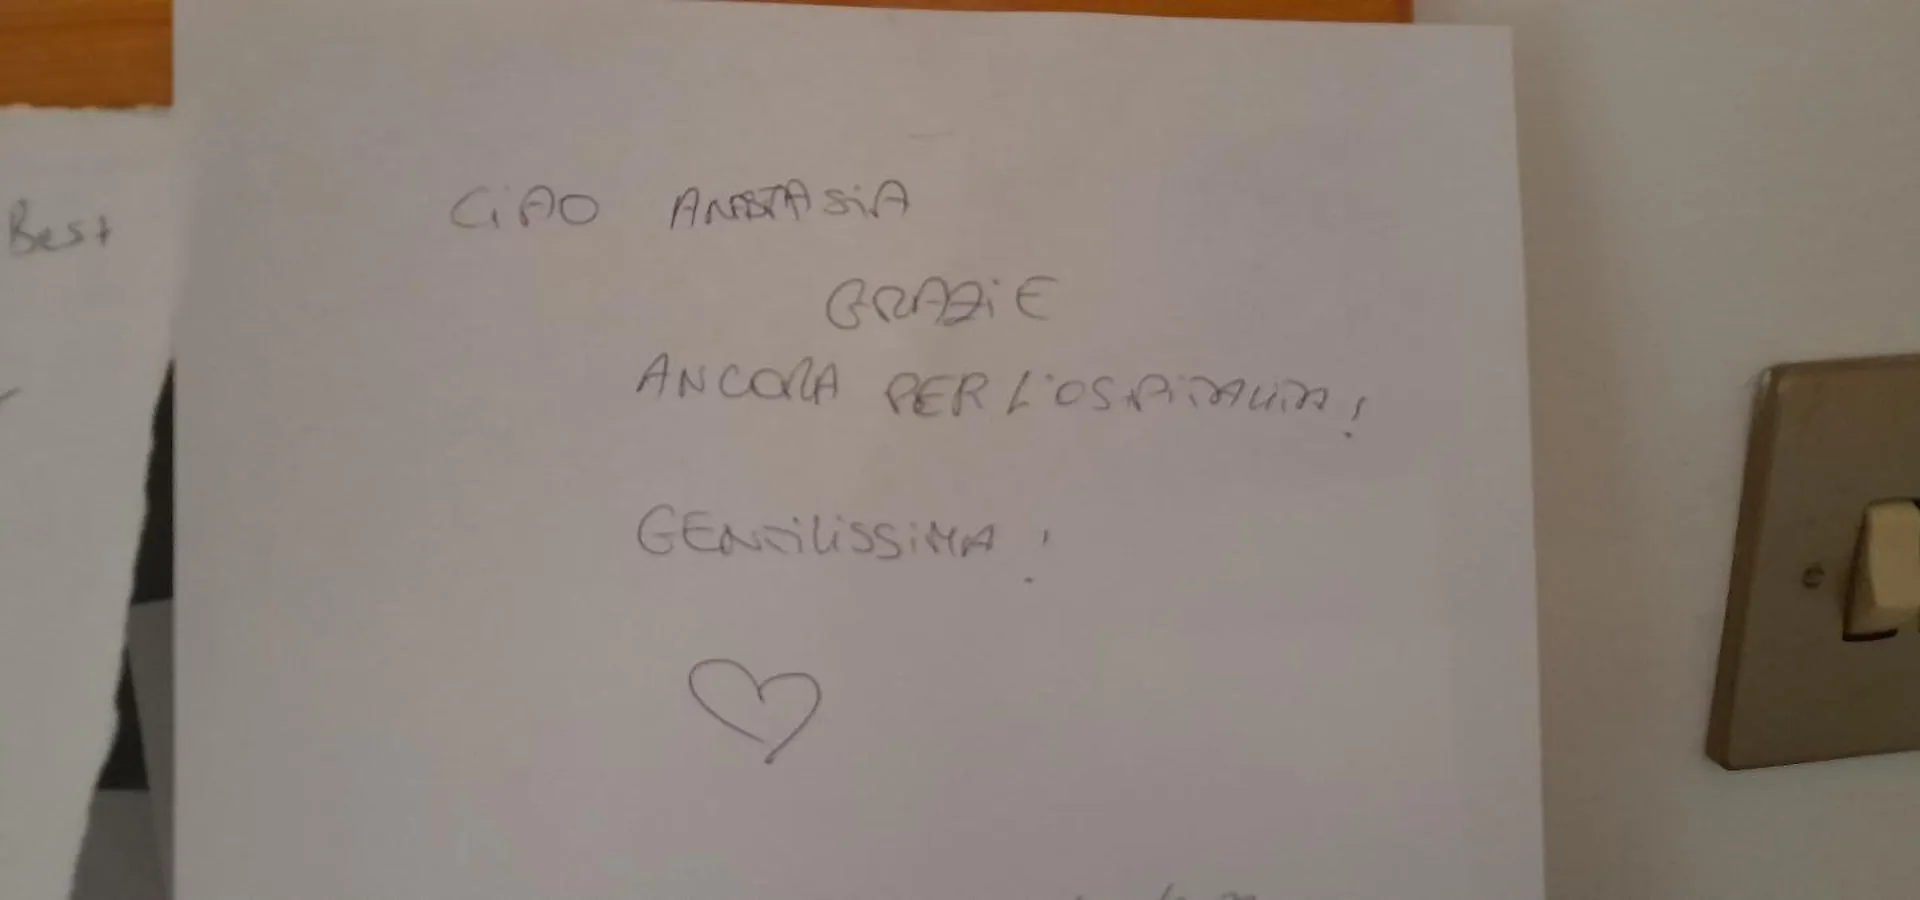 Best
CiAO ANASTASiA
GRAZiE
ANCORA PER L'OSPiTALiTA!
GENTiLiSSiMA!